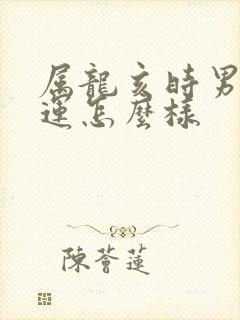 属龍亥時男
運怎麼樣
陳薈蓮